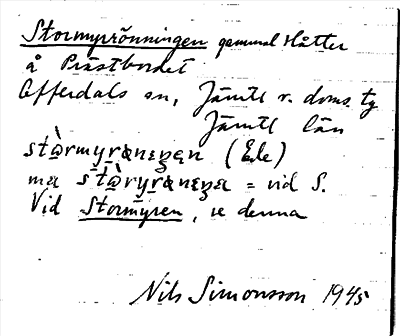 Stormyrrönningen gammal slåtter
å Prästbordet
Offerdals sn, Jämtl v. doms. tg
Jämtl län
stɷ̀rmyrɷnɛŋɛn (Ede)
ma stɷ̀ryrɷnɛŋa = vid S.
Vid Stormyren, se denna
Nils Simonsson 1945